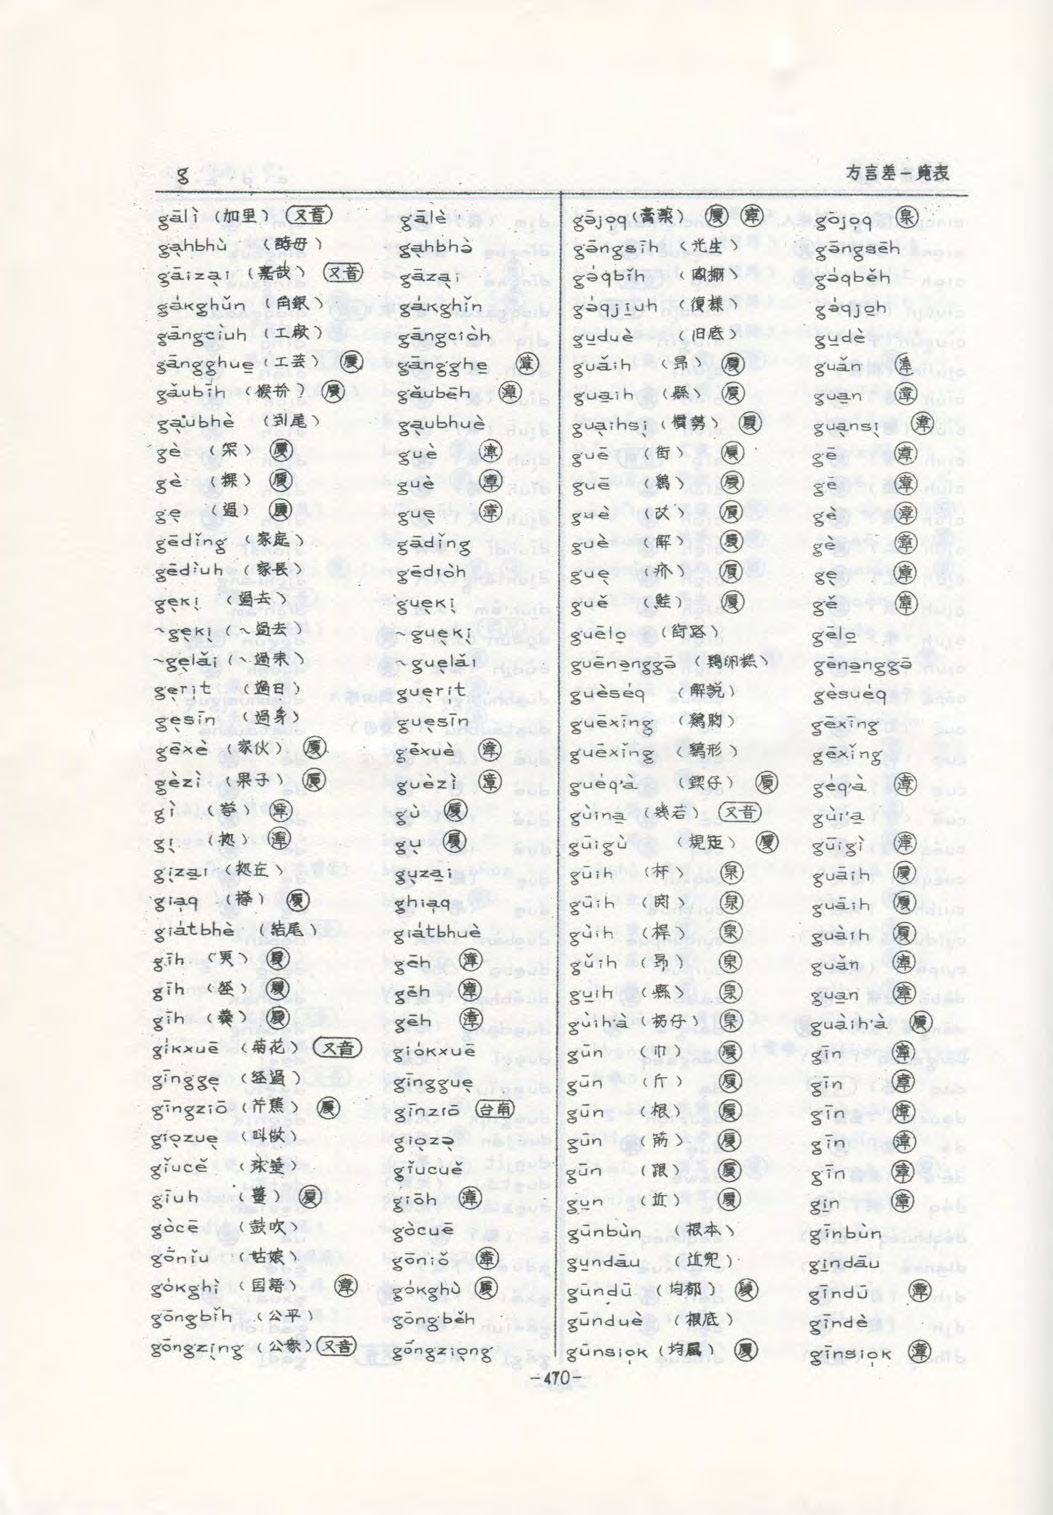 g 方言差一覽表
gālì (加里) 又音 gālè
gạhbhù (酵母) gạhbhə̀
gāizại (嘉哉) 又音 gāzại
gákghǔn (角銀) gákghǐn
gāngcìuh (工廠) gāngciòh
gāngghuẹ (工芸) 厦 gāngghẹ 漳
gǎubīh 厦 gǎubēh 漳
gạubhè (到尾) gạubhuè
gè 厦 guè 漳
gè (粿) 厦 guè 漳
gẹ (過) 厦 guẹ 漳
gēdǐng (家庭) gādǐng
gēdìuh (家長) gēdiòh
gẹkị (過去) guẹkị
~gẹkị (~過去) ~guẹkị
~gẹlǎi (~過来) ~guẹlǎi
gẹrit (過日) guẹrit
gẹsīn (過身) guẹsīn
gēxè (家伙) 厦 gēxuè 漳
gèzì (果子) 厦 guèzì 漳
gì 漳 gù 厦
gị 漳 gụ 厦
gịzại (拠在) gụzại
giạq 厦 ghiạq
giátbhè (結尾) giátbhuè
gīh 厦 gēh 漳
gīh 厦 gēh 漳
gīh (羹) 厦 gēh 漳
gíkxuē (菊花) 又音 giókxuē
gīnggẹ (経過) gīngguẹ
gīngziō (芹蕉) 厦 gīnziō 台南
giọzuẹ (叫做) giọzə
gǐucě gǐucuě
gīuh (薑) 厦 giōh 漳
gòcē (鼓吹) gòcuē
gōnǐu (姑娘) gōniǒ 漳
gókghì (国語) 漳 gókghù 厦
gōngbǐh (公平) gōngběh
gōngzịng (公衆) 又音 gōngziọng
gājọq (膏薬) 厦 漳 gōjọq 泉
gāngsīh (光生) gāngsēh
gə́qbǐh gə́qběh
gə́qjịuh (復樣) gə́qjọh
gụduè (旧底) gụdè
guǎih (昂) 厦 guǎn 漳
guạih (縣) 厦 guạn 漳
guạihsị (慣勢) 厦 guạnsị 漳
guē (街) 厦 gē 漳
guē (鶏) 厦 gē 漳
guè 厦 gè 漳
guè (解) 厦 gè 漳
guẹ (疥) 厦 gẹ 漳
guě (鮭) 厦 gě 漳
guēlọ (街路) gēlọ
guēnənggə̄ (鶏卵糕) gēnənggə̄
guèséq (解説) gèsuéq
guēxīng (鶏胸) gēxīng
guēxǐng (鶏形) gēxǐng
guéq'à (鍥仔) 厦 géq'à 漳
gùinạ (幾若) 又音 gùi'ạ
gūigù (規矩) 厦 gūigì 漳
gūih 泉 guāih 厦
gūih (関) 泉 guāih 厦
gùih 泉 guàih 厦
gǔih (昂) 泉 guǎn 漳
guịh (縣) 泉 guạn 漳
gùih'à 泉 guàih'à 厦
gūn (巾) 厦 gīn 漳
gūn (斤) 厦 gīn 漳
gūn (根) 厦 gīn 漳
gūn (筋) 厦 gīn 漳
gūn (跟) 厦 gīn 漳
gụn (近) 厦 gịn 漳
gūnbùn (根本) gīnbùn
gụndāu (近兜) gịndāu
gūndū 厦 gīndū 漳
gūnduè (根底) gīndè
gūnsiọk (均属) 厦 gīnsiọk 漳
-470-